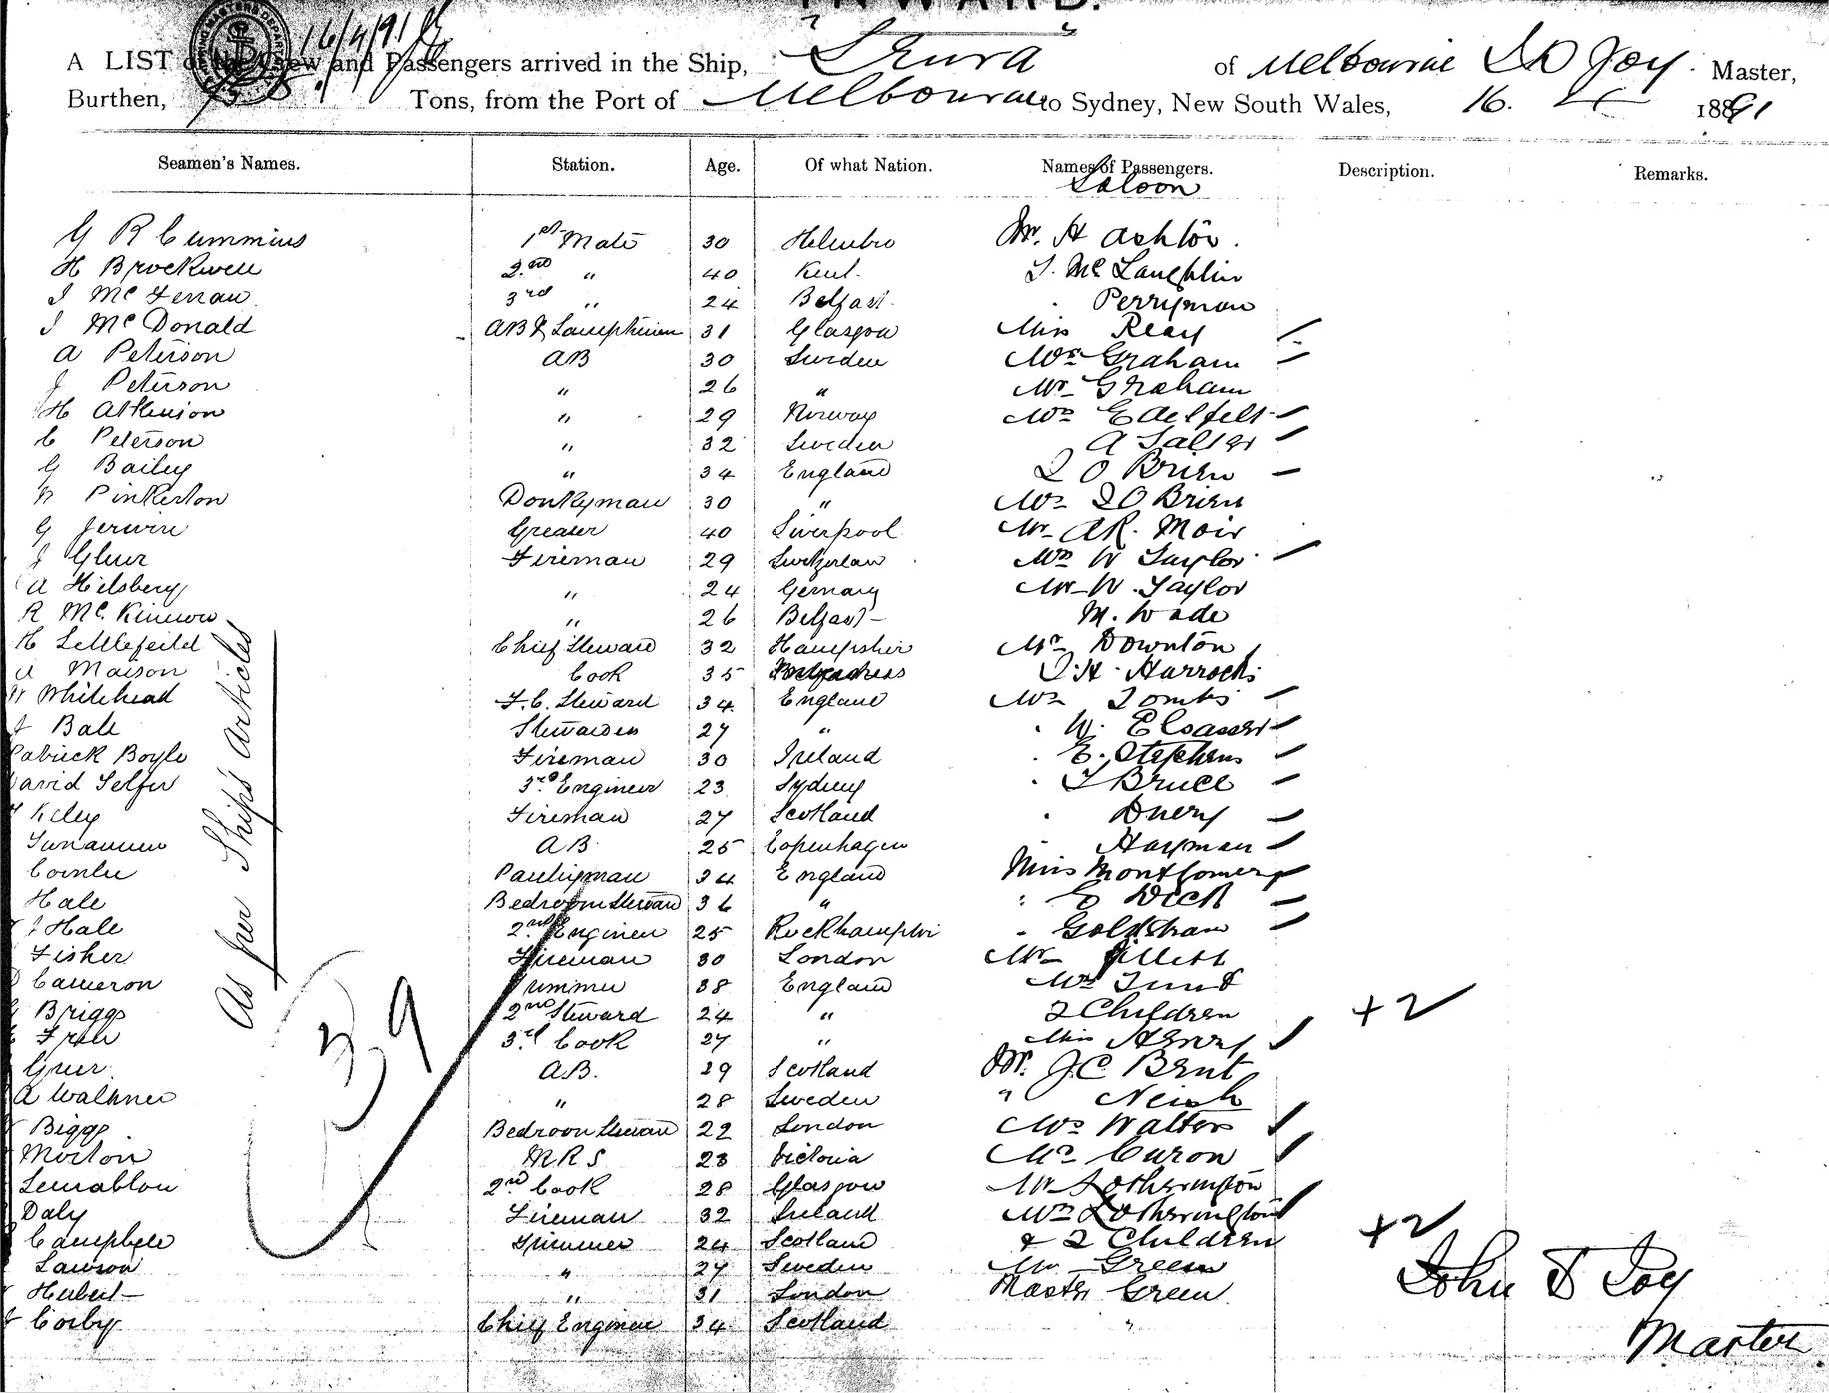 INWARD.
16/4/91
A LIST of the Crew and Passengers arrived in the Ship, of Melbourne Joy. Master,
Burthen, Tons, from the Port of Melbourne to Sydney, New South Wales, 16. 4 1891
Seamen's Names. Station. Age. Of what Nation. Names of Passengers. Description. Remarks.
Saloon
G R Cummins 1st Mate 30 Mr. H Ashton.
H Brockwell 2nd " 40 Kent. J. Mc Laughlin
J Mc Ferran 3rd " 24 Belfast. Perryman
J Mc Donald AB & Lamptrimer 31 Glasgow Miss Reay
A Peterson AB 30 Sweden Mrs Graham
J Peterson " 26 " Mr Graham
H Atkinson " 29 Norway Mrs
C Peterson " 32 Sweden A Salter
G Bailey " 34 England J O Brien
Pinkerton Donkyman 30 " Mrs J O Brien
G Jerwin Greaser 40 Liverpool Mr A R. Moir
J Fireman 29 Mrs W Taylor
A Hilsberg " 24 Germany Mr W. Taylor
R Mc. " 26 Belfast M. Wade
H Littlefeild Chief Steward 32 Hampshire Mr Downton
A Maison Cook 35 H.
W Whitehead F.C. Steward 34 England Mrs Tombs
Bale Stewardess 27 " W. Elsasser
Patrick Boyle Fireman 30 Ireland E. Stephens
David 3rd Engineer 23 Sydney T Bruce
Kiley Fireman 27 Scotland
AB 25 Copenhagen Hayman
Pantryman 34 England Miss Montgomery
Hale Bedroom Steward 36 " E Dick
J Hale 2nd Engineer 25 Rockhampton
Fisher Fireman 30 London Mr
Cameron Trimmer 38 England Mrs
Briggs 2nd Steward 24 " 2 Children +2
3rd Cook 27 " Miss
Greer A.B. 29 Scotland Mr. J.C. Brent
A " 28 Sweden " Neish
Biggs Bedroom Steward 22 London Mrs Walters
Morton M R S 23 Victoria Caron
2nd Cook 28 Glasgow Mr Lotherington
Daly Fireman 32 Ireland Mrs Lotherington
Campbell Trimmer 24 Scotland & 2 Children +2
Lawson " 27 Sweden Mr Green
Hubert " 31 London Master Green
Corby Chief Engineer 34 Scotland "
As per Ship's Articles
39
Master